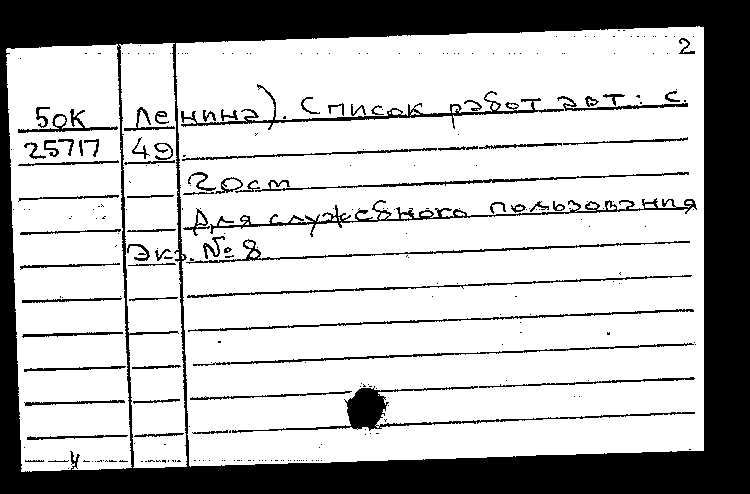 2
БОК Ленина). Список работ авт: с.
25717 49
20 см
Для служебного пользования
Экз. № 8
ч